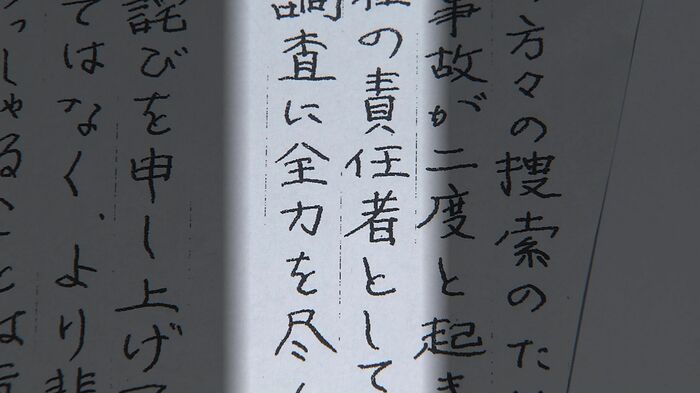 方々の捜索のた
事故が二度と起き
の責任者として
調査に全力を尽く
詫びを申し上げ
ではなく、より悲
っしゃることは